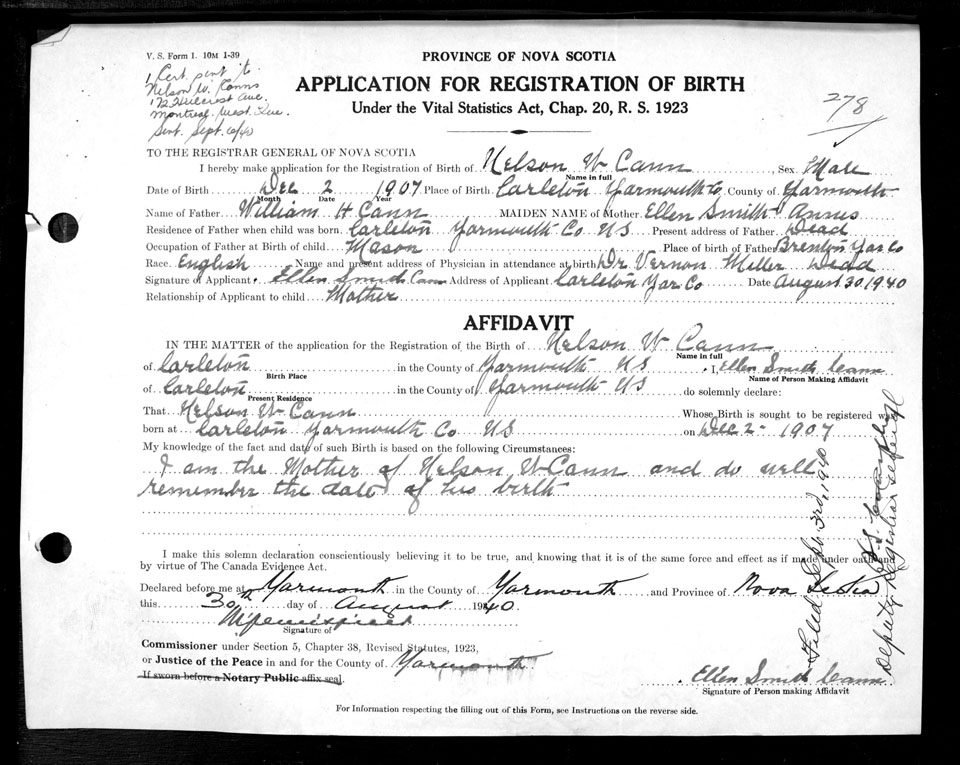 V. S. Form 1. 10M 1-39
1 Cert. sent to
Nelson W. Canns
172 Hillcrest Ave.
Montreal West. Que.
Sent. Sept. 6/40
PROVINCE OF NOVA SCOTIA
APPLICATION FOR REGISTRATION OF BIRTH
Under the Vital Statistics Act, Chap. 20, R. S. 1923
278
TO THE REGISTRAR GENERAL OF NOVA SCOTIA
I hereby make application for the Registration of Birth of Nelson W Cann, Sex Male
Name in full
Date of Birth Dec 2 1907 Place of Birth Carleton Yarmouth Co County of Yarmouth
Month Date Year
Name of Father William H Cann MAIDEN NAME of Mother Ellen Smith Annis
Residence of Father when child was born Carleton Yarmouth Co NS Present address of Father Dead
Occupation of Father at Birth of child Mason Place of birth of Father Brenton Yar Co
Race English Name and present address of Physician in attendance at birth Dr Vernon Miller Dead
Signature of Applicant Ellen Smith Cann Address of Applicant Carleton Yar Co Date August 30, 1940
Relationship of Applicant to child Mother
AFFIDAVIT
IN THE MATTER of the application for the Registration of the Birth of Nelson W Cann
Name in full
of Carleton in the County of Yarmouth NS I, Ellen Smith Cann
Birth Place Name of Person Making Affidavit
of Carleton in the County of Yarmouth NS do solemnly declare:
Present Residence
That Nelson W Cann Whose Birth is sought to be registered was
born at Carleton Yarmouth Co NS on Dec 2 - 1907
My knowledge of the fact and date of such Birth is based on the following Circumstances:
I am the Mother of Nelson W Cann and do well
remember the date of his birth
I make this solemn declaration conscientiously believing it to be true, and knowing that it is of the same force and effect as if made under oath and
by virtue of The Canada Evidence Act.
Declared before me at Yarmouth in the County of Yarmouth and Province of Nova Scotia
this 30th day of August 1940
Signature of
Commissioner under Section 5, Chapter 38, Revised Statutes, 1923,
or Justice of the Peace in and for the County of Yarmouth
If sworn before a Notary Public affix seal.
Ellen Smith Cann
Signature of Person making Affidavit
For Information respecting the filling out of this Form, see Instructions on the reverse side.
Filed Sept. 3rd, 1940
Deputy Registrar General